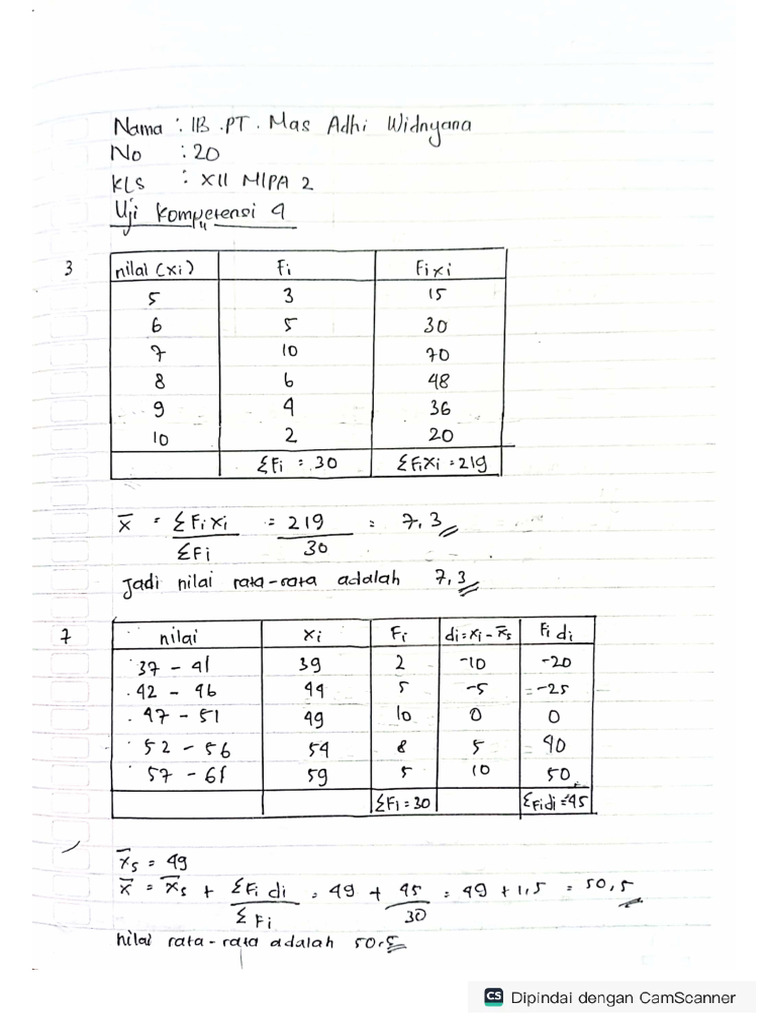 Nama : IB . PT . Mas Adhi Widnyana
No : 20
KLS : XII MIPA 2
Uji Kompetensi 4
3
nilai (xi) Fi Fixi
5 3 15
6 5 30
7 10 70
8 6 48
9 4 36
10 2 20
ΣFi = 30 ΣFiXi = 219
x̄ = ΣFiXi / ΣFi = 219 / 30 = 7,3
Jadi nilai rata-rata adalah 7,3
7
nilai xi Fi di = xi - x̄s Fi di
37 - 41 39 2 -10 -20
42 - 46 44 5 -5 = -25
47 - 51 49 10 0 0
52 - 56 54 8 5 = 40
57 - 61 59 5 10 50
ΣFi = 30 ΣFidi = 45
x̄s = 49
x̄ = x̄s + ΣFi di / ΣFi = 49 + 45 / 30 = 49 + 1,5 = 50,5
nilai rata-rata adalah 50,5
CS Dipindai dengan CamScanner